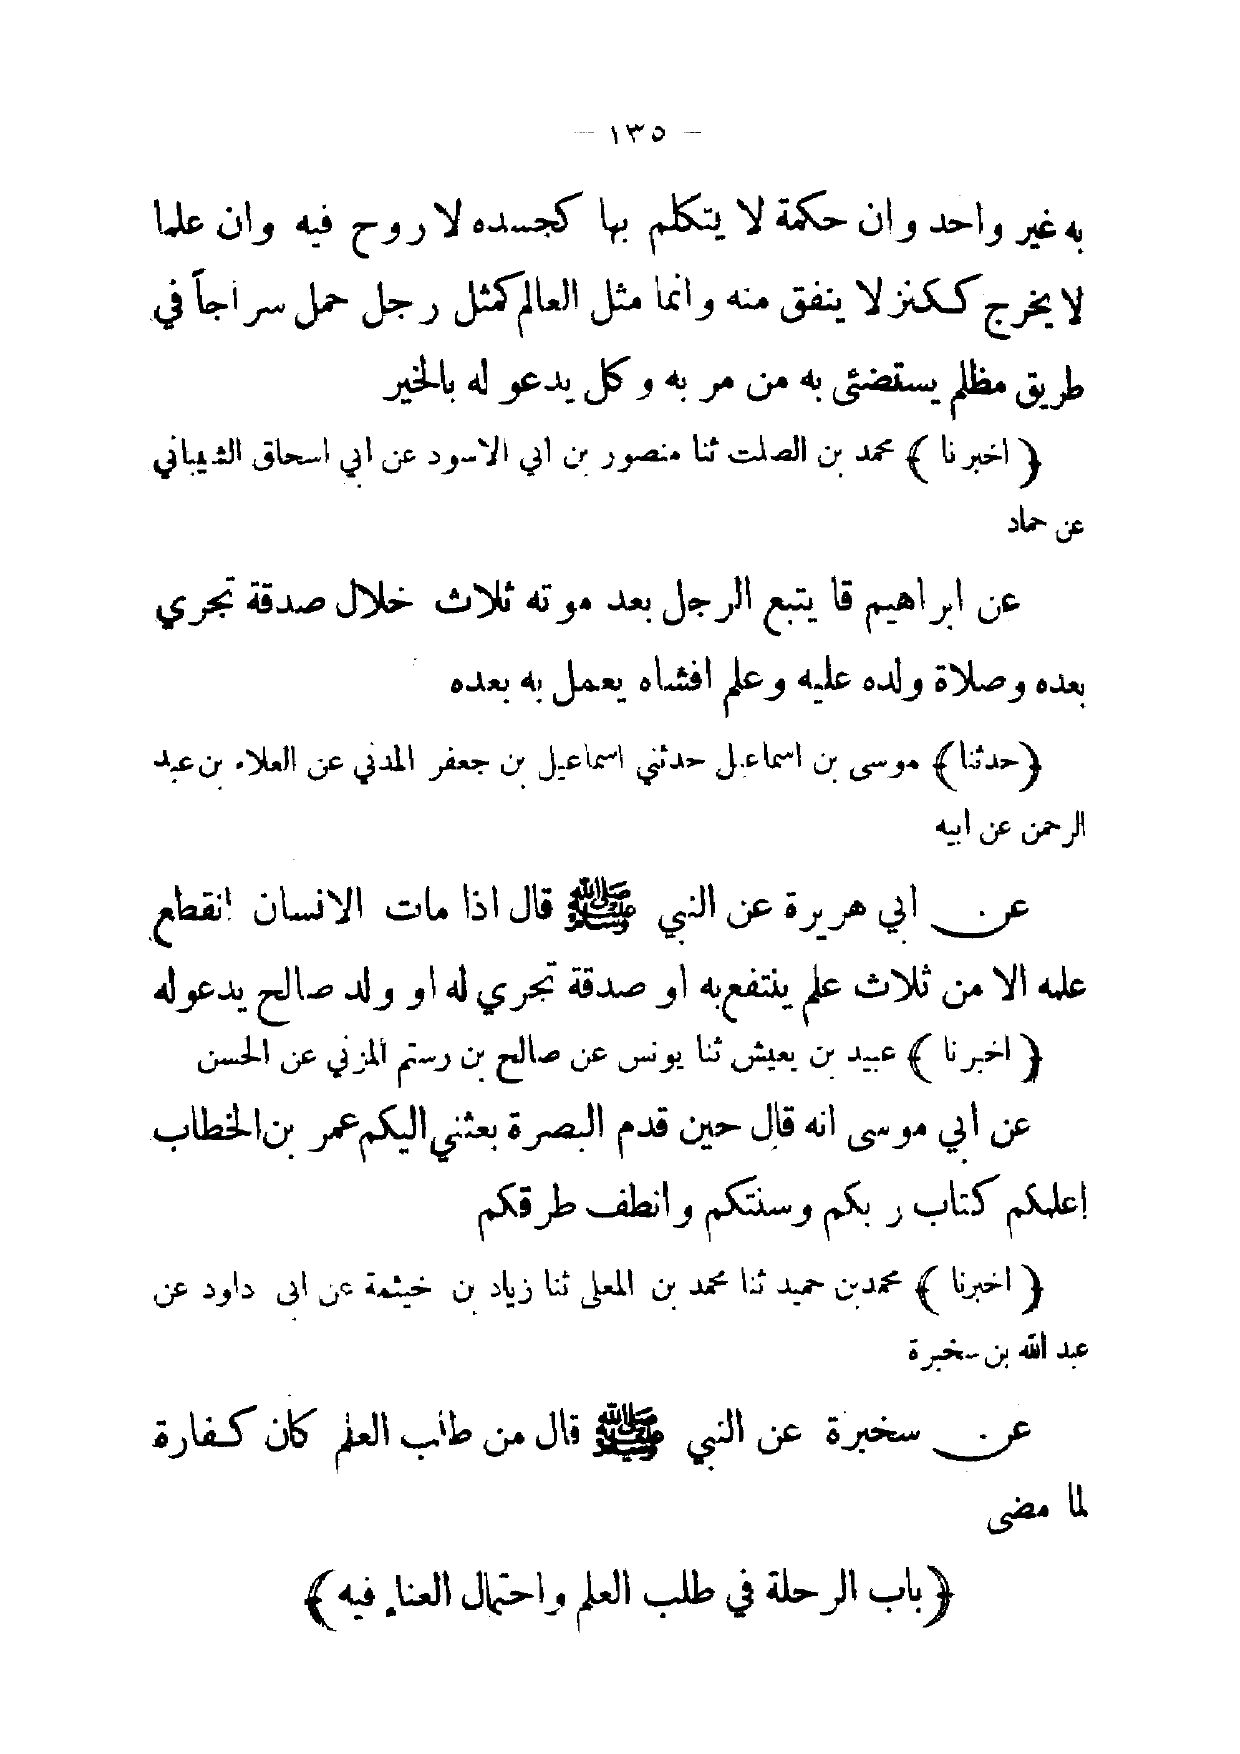 — ١٣٥ —
به غير واحد وان حكمة لا يتكلم بها كجسده لا روح فيه وان علما
لا يخرج ككنز لا ينفق منه وانما مثل العالم كمثل رجل حمل سراجاً في
طريق مظلم يستضئ به من مر به وكل يدعو له بالخير
﴿ اخبرنا ﴾ محمد بن الصلت ثنا منصور بن ابي الاسود عن ابي اسحاق الشيباني
عن حماد
عن ابراهيم قا يتبع الرجل بعد موته ثلاث خلال صدقة تجري
بعده وصلاة ولده عليه وعلم افشاه يعمل به بعده
﴿حدثنا﴾ موسى بن اسماعيل حدثني اسماعيل بن جعفر المدني عن العلاء بن عبد
الرحمن عن ابيه
عن ابي هريرة عن النبي ﷺ قال اذا مات الانسان انقطع
عمله الا من ثلاث علم ينتفع به او صدقة تجري له او ولد صالح يدعو له
﴿ اخبرنا ﴾ عبيد بن يعيش ثنا يونس عن صالح بن رستم المزني عن الحسن
عن أبي موسى انه قال حين قدم البصرة بعثني اليكم عمر بن الخطاب
إعلمكم كتاب ربكم وسنتكم وانظف طرقكم
﴿ اخبرنا ﴾ محمد بن حميد ثنا محمد بن المعلى ثنا زياد بن خيثمة عن ابى داود عن
عبد الله بن سخبرة
عن سخبرة عن النبي ﷺ قال من طلب العلم كان كفارة
لما مضى
﴿باب الرحلة في طلب العلم واحتمال العناء فيه﴾